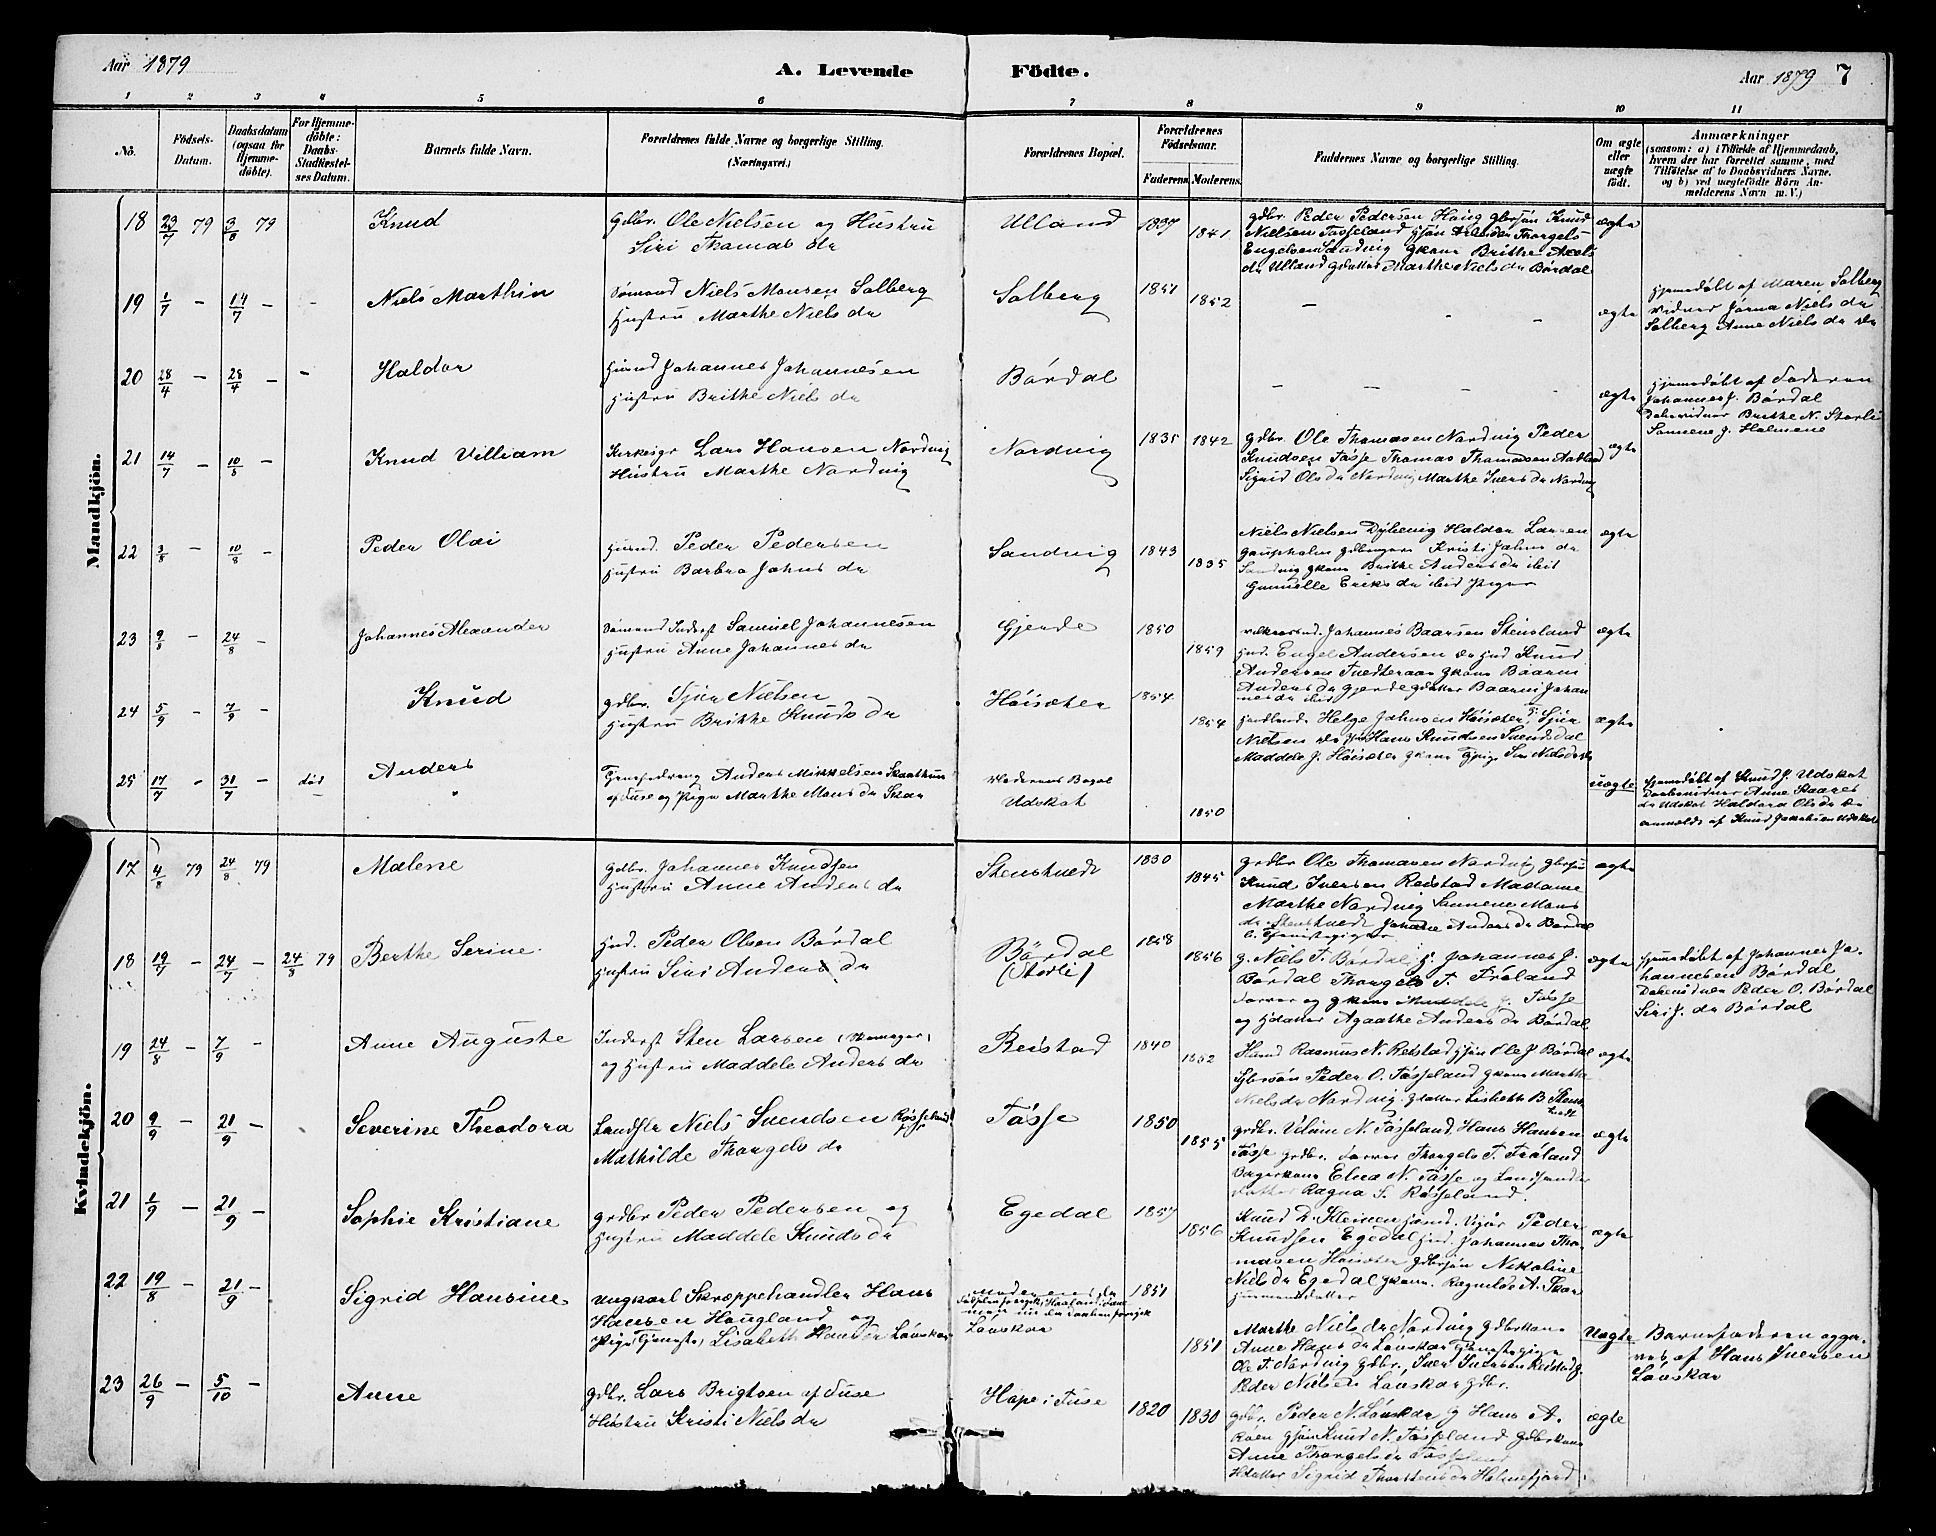 Aar 1879
A. Levende Födte.
Aar 1879 7
1 2 3 4 5 6 7 8 9 10 11
No.
Födsels-Datum.
Daabsdatum (ogsaa for Hjemme-döbte).
For Hjemme-döbte: Daabs-Stadfæstel-ses Datum.
Barnets fulde Navn.
Forældrenes fulde Navne og borgerlige Stilling. (Næringsvei.)
Forældrenes Bopæl.
Forældrenes Födselsaar.
Faderens Moderens.
Faddernes Navne og borgerlige Stilling.
Om ægte eller uægte födt.
Anmærkninger
(saasom: a) i Tilfælde af Hjemmedaab, hvem der har forrettet samme, med Tilföielse af to Daabsvidners Navne. og b) ved uægtefödte Börn An-melderens Navn m. V.)
Mandkjön.
18 23/7 79 3/8 79 Knud
Gdbr. Ole Nielsen og Hustru
Siri Thomas dr
Ulland 1837 1841
gdbr. Peder Pedersen Haug gbrsön Knud
Nielsen Tösseland
Engelsen Sandvig gkone Brithe Axels
dr Ulland gdatter Marthe Niels dr Bördal
ægte
19 1/7 – 14/7 – – Niels Marthin
Sömand Niels Monsen Solberg
Hustru Marthe Niels dr
Solberg 1851 1852 – – –
ægte
Hjemedöbt af Maren Solberg
Vidner Jörna Niels dr
Solberg Anne Niels dr do
20 28/4 – 28/4 – – Haldor
Husmd Johannes Johannesen
Hustru Brithe Niels dr
Bördal – – – –
ægte
Hjemedöbt af Faderen
Johannes J. Bördal
Daabsvidner Brithe N. Storli
Sannene J. Holmene
21 14/7 – 10/8 – Knud Villiam
Kirkesgr Lars Hansen Nordvig
Hustru Marthe Nordvig
Nordvig 1835 1842
gdbr. Ole Thomasen Nordvig Peder
Knudsen Tösse Thomas Thomassen
Sigrid Ols dr Nordvig Marthe Ivers dr Nordvig
ægte
22 3/8 – 10/8 – Peder Olai
Husmd. Peder Pedersen
Hustru Barbra Johns dr
Sandvig 1843 1835
Niels Nielsen Dybevig Haldor Larsen
Gaupholm Kristi Johns dr
Sandvig gkone Brithe Anders dr ibid
Gunnelle Eriks dr ibid Piger
ægte
23 9/8 – 24/8 – Johannes Alexander
Sömand Inderst Samuel Johannesen
Hustru Anne Johannes dr
Gjerde 1850 1859
Johannes Baarsen Stensland
Hmd. Engel Andersen do Hmd Knud
Andersen Tvedteraas gkone Baarni
Anders dr Gjerde gdatter Baarni Johan
nes dr ibid
ægte
24 5/9 – 7/9 – Knud
gdbr. Sjur Nielsen
Hustru Brithe Knuds dr
Höisæter 1854 1854
Helge Johnsen Höisæter, Sjur
Nielsen do Hans Knudsen Svendsdal
Maddele J. Höisæter gkone Siri Nilsdr do
ægte
25 17/7 – 31/7 – död – Anders
Anders Mikkelsen
af Fuse og Pige Marthe Mons dr Skar
Moderens Bopæl
Udskot
1850
uægte
Hjemedöbt af Knud J. Udskot
Daabsvidner Anne Kaares
dr Udskot Haldora Ols dr do
anmeldt af Knud Jakobsen Udskot
Kvindekjön.
17 4/8 79 24/8 79 Malene
Gdbr. Johannes Knudsen
Hustru Anne Anders dr
Stenstvedt 1830 1845
grdbr Ole Thomasen Nordvig gbrsön
Knud Iversen Reistad Madame
Marthe Nordvig Sannene Mons
dr Stenstvedt Johanne Anders dr Bördal
Tjenestepiger
ægte
18 19/7 – 24/7 – 24/8 79 Berthe Serine
Hmd. Peder Olsen Bördal
Hustru Siri Anders dr
Bördal
(Storli) 1858 1856
g. Niels T. Bördal, g. Johannes J.
Bördal Thorgels T. Fröland
Farver og gkone Maddele J. Tösse
og gdatter Agathe Anders dr Bördal
ægte
Hjemedöbt af Johannes Jo-
hannesen Bördal
Daabsvidner Peder O. Bördal
Siri J. dr Bördal
19 24/8 – 7/9 – Anne Auguste
Inderst Sten Larsen
og Hustru Maddele Anders dr
Reistad 1840 1852
Husmd Rasmus N. Reistad gsön Ole J Bördal
Gbrsön Peder O. Tösseland gkone Marthe
Niels dr Nordvig. gdatter Lisbeth B Stens
tvedt
ægte
20 9/9 – 21/9 – Severine Theodora
Landhr Niels Svendsen Rösseland
Mathilde Thorgels dr
Tösse 1850 1855
grdbr. Villum N. Tösseland. Hans Hansen
Tösse grdbr. Farver Thorgels T. Fröland
Bagerkone Elna N. Tösse og Landhandler
datter Ragna S. Rösseland
ægte
21 1/9 – 21/9 – Sophie Kristiane
grdbr Peder Pedersen og
Hustru Maddele Knuds dr
Egedal 1857 1856
Knud D. Kleinen Husmd. Vigör Peder
Knudsen Egedal Hmd. Johannes Tho-
masen Höisæter gdbrsön Nikoline
Niels dr Egedal gkone. Ragnilde A. Skar
Husmandsdatter
ægte
22 19/8 – 21/9 – Sigrid Hansine
Ungkarl Skræppehandler Hans
Hansen Haugland og
Pige Tjeneste, Lisabeth Hans dr Lönskar
Moderens da
Lönskar
1851 1851
Marthe Niels dr Nordvig gdbrkone
Anne Hans dr Lönskar Tjenestepige
Ole T. Nordvig gdbr., Iver Iversen Reistad g.
Peder Nielsen Lönskar gdbr.
Uægte
Barnefaderen opgi-
ves af Hans Iversen
Lönskar
23 26/9 – 5/10 – Anne
gdbr. Lars Brigtsen af Fuse
Hustru Kristi Niels dr
Hope i Fuse 1820 1830
gdbr. Peder N. Lönskar g Hans A.
Röen gsön Knud N. Tösseland gdbrkone
Anne Thorgels dr Tösseland
Hdatter Sigrid Thorstens dr Holmefjord
ægte